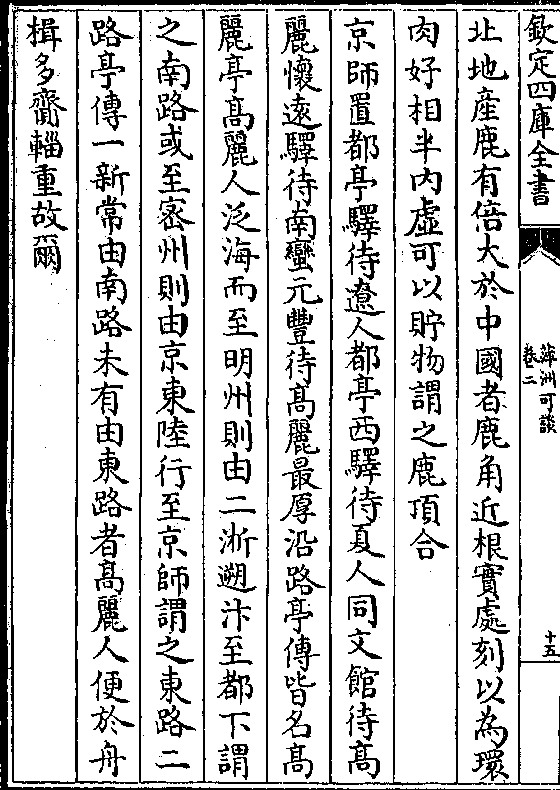 欽定四庫全書
萍洲可談
卷二
十五
北地産鹿有倍大於中國者鹿角近根實處刻以為環
肉好相半内虛可以貯物謂之鹿頂合
京師置都亭驛待遼人都亭西驛待夏人同文館待髙
麗懷遠驛待南蠻元豐待髙麗最厚沿路亭傳皆名髙
麗亭髙麗人泛海而至明州則由二浙遡汴至都下謂
之南路或至宻州則由京東陸行至京師謂之東路二
路亭傳一新常由南路未有由東路者髙麗人便於舟
楫多齎輜重故爾